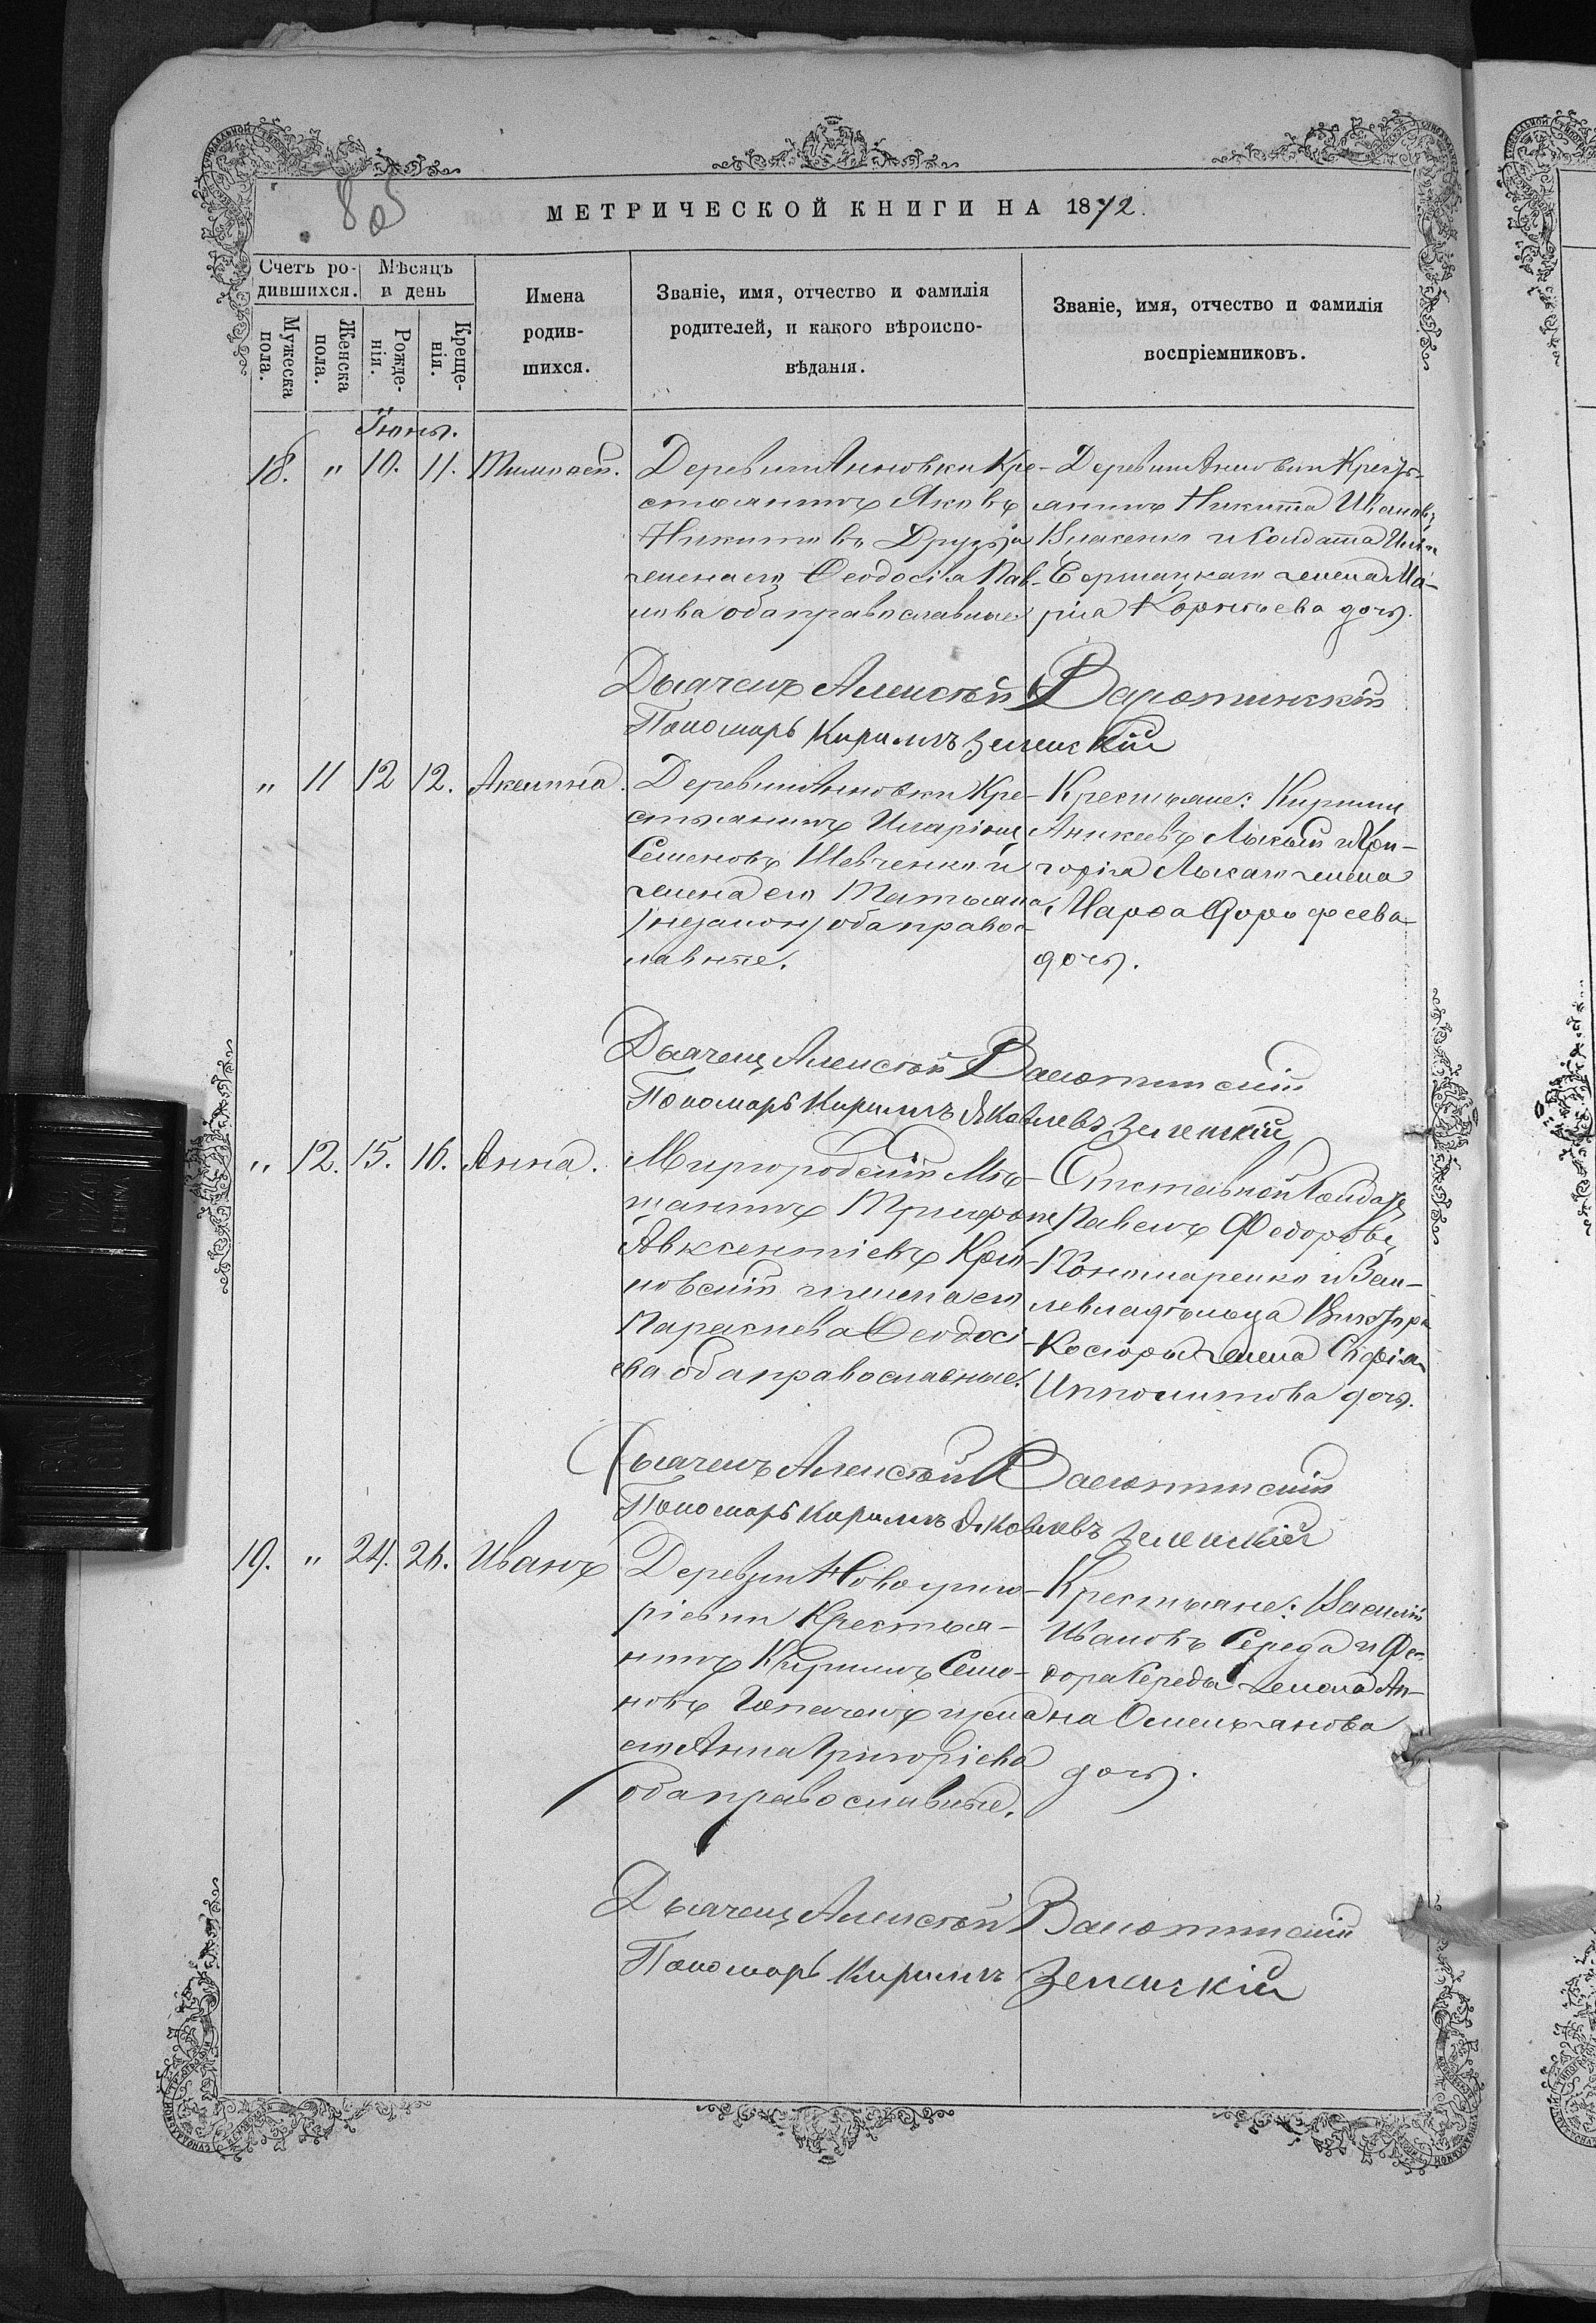 85
МЕТРИЧЕСКОЙ КНИГИ НА 1872.
Счетъ ро-
дившихся.
Мѣсяцъ
и день
Мужеска
пола.
Женска
пола.
Рожде-
нія.
Креще-
нія.
Имена
родив-
шихся.
Званіе, имя, отчество и фамилія
родителей, и какого вѣроиспо-
вѣданія.
Званіе, имя, отчество и фамилія
воспріемниковъ.
Іюнь.
18. " 10. 11. Тимофей.
Деревни Анновки Кре-
стьянинъ Яковъ
Никитовъ Друзь и
жена его Ѳеодосія Пав-
лова оба православные
Деревни Анновки Крестъ-
янинъ Никита Ивановъ
Власенко и Солдата
жена Ма-
рія Корнѣева дочь.
Дьячекъ Алексѣй Валютинскій
Пономарь Кирилъ Зеленскій
" 11 12 12. Акелина.
Деревни Анновки Кре-
стьянинъ Иларіонъ
Семеновъ Шевченко и
жена его Татьяна
оба правос-
лавные.
Крестьяне: Кирилъ
Аникеевъ Лысый и Гри-
горія Лысаго жена
Марѳа Дорофеева
дочь.
Дьячекъ Алексѣй Валютинскій
Пономарь Кирилъ Яковлевъ Зеленскій
" 12. 15. 16. Анна.
Миргородскій Мѣ-
щанинъ Трифонъ
Авксентіевъ
и жена его
Параскева Ѳеодосі-
ева оба православные.
Отставной Солдатъ
Павелъ Федоровъ
Пономаренко и Зем-
левладѣльца Виктора
жена Софія
Ипполитова дочь.
Дьячекъ Алексѣй Валютинскій
Пономарь Кирилъ Яковлевъ Зеленскій
19. " 24. 26. Иванъ
Деревни Новогриго-
рієвки Крестья-
нинъ Кирилъ Семе-
новъ и жена
его Анна Григоріева
оба православные.
Крестьяне: Василій
Ивановъ Середа и Фе-
дора Середы жена Ан-
на Омельянова
дочь.
Дьячекъ Алексѣй Валютинскій
Пономарь Кирилъ Зеленскій